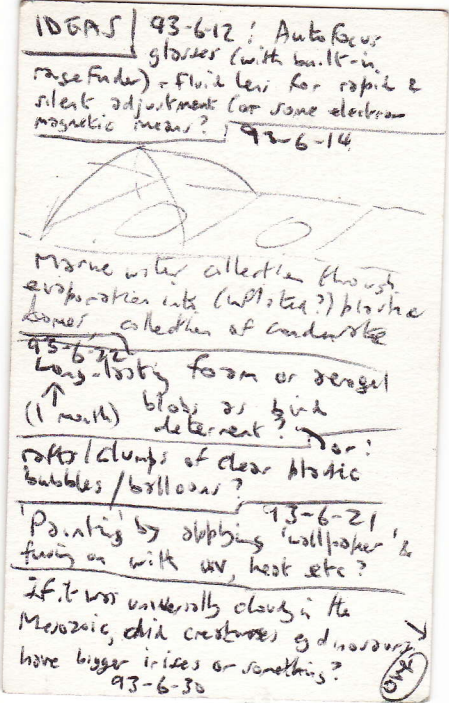 IDEAS 93-6-12: Autofocus
glasses (with built-in
rangefinder) - fluid lens for rapid &
silent adjustment (or some electro-
magnetic means?
93-6-14
Marine water collection through
evaporation into (inflated?) plastic
domes, collection of condensate
93-6-22
Long-lasting foam or aerogel
(1 month) blobs as bird
deterrent? or:
rafts/clumps of clear plastic
bubbles/balloons?
93-6-21
'Painting' by applying 'wallpaper' &
fusing on with uv, heat etc?
If it was universally cloudy in the
Mesozoic, did creatures eg dinosaurs
have bigger irises or something?
93-6-30